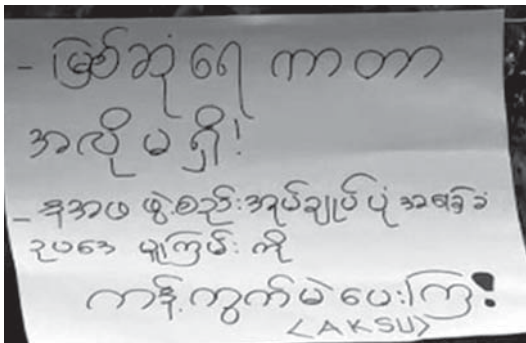 - မြစ်ဆုံရေ ကာတာ
အလိုမရှိ!
- နအဖ ဖွဲ့စည်းအုပ်ချုပ်ပုံ အခြေခံ
ဥပဒေ မူကြမ်း ကို
ကန့်ကွက်မဲပေးကြ!
<AKSU>